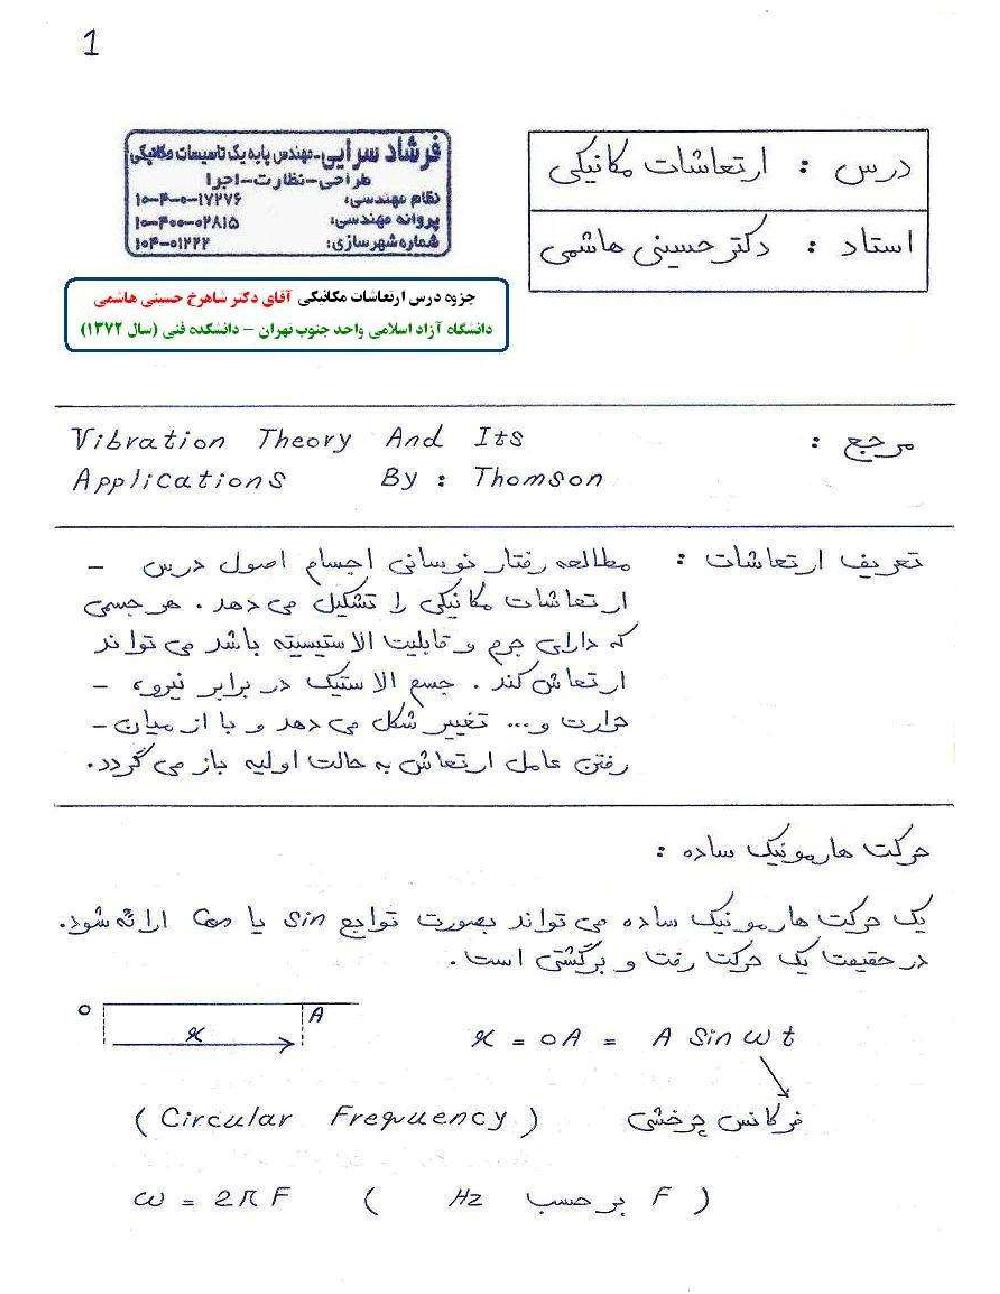 1
درس : ارتعاشات مکانیکی
استاد : دکتر حسینی هاشمی
فرشاد سرایی-مهندس پایه یک تاسیسات مکانیکی
طراحی-نظارت-اجرا
نظام مهندسی: ۱۰-۴-۰-۱۷۲۷۶
پروانه مهندسی: ۱۰-۴۰۰-۰۲۸۱۵
شماره شهرسازی: ۱۰۴-۰۱۲۲۲
جزوه درس ارتعاشات مکانیکی آقای دکتر شاهرخ حسینی هاشمی
دانشگاه آزاد اسلامی واحد جنوب تهران – دانشکده فنی (سال ۱۳۷۲)
مرجع :
Vibration Theory And Its
Applications By : Thomson
تعریف ارتعاشات : مطالعه رفتار نوسانی اجسام اصول درس -
ارتعاشات مکانیکی را تشکیل می دهد . هر جسمی
که دارای جرم و قابلیت الاستیسیته باشد می تواند
ارتعاش کند . جسم الاستیک در برابر نیرو، -
حرارت و... تغییر شکل می دهد و با از میان-
رفتن عامل ارتعاش به حالت اولیه باز می گردد.
حرکت هارمونیک ساده :
یک حرکت هارمونیک ساده می تواند بصورت توابع sin یا Cos ارائه شود.
در حقیقت یک حرکت رفت و برگشتی است.
O A
x
x = OA = A Sin ω t
فرکانس چرخشی ( Circular Frequency )
ω = 2π F ( F بر حسب Hz )